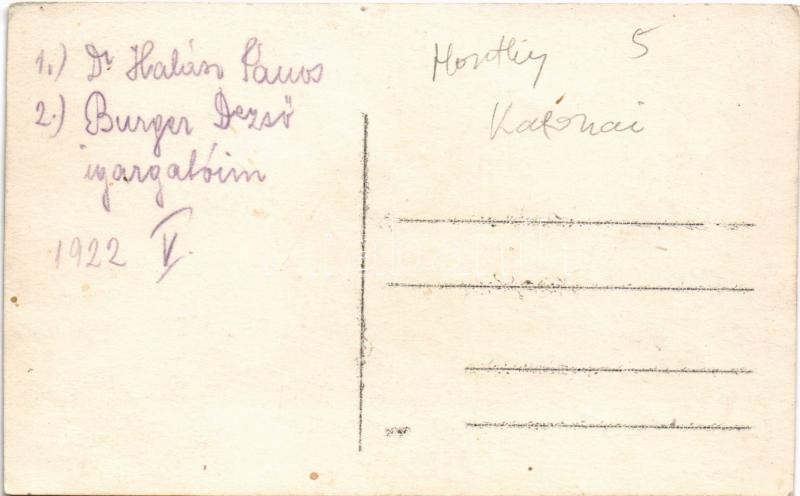 1.) Dr Halász János
2.) Burger Dezső
igazgatóim
1922 V.
Horthy 5
Katonai